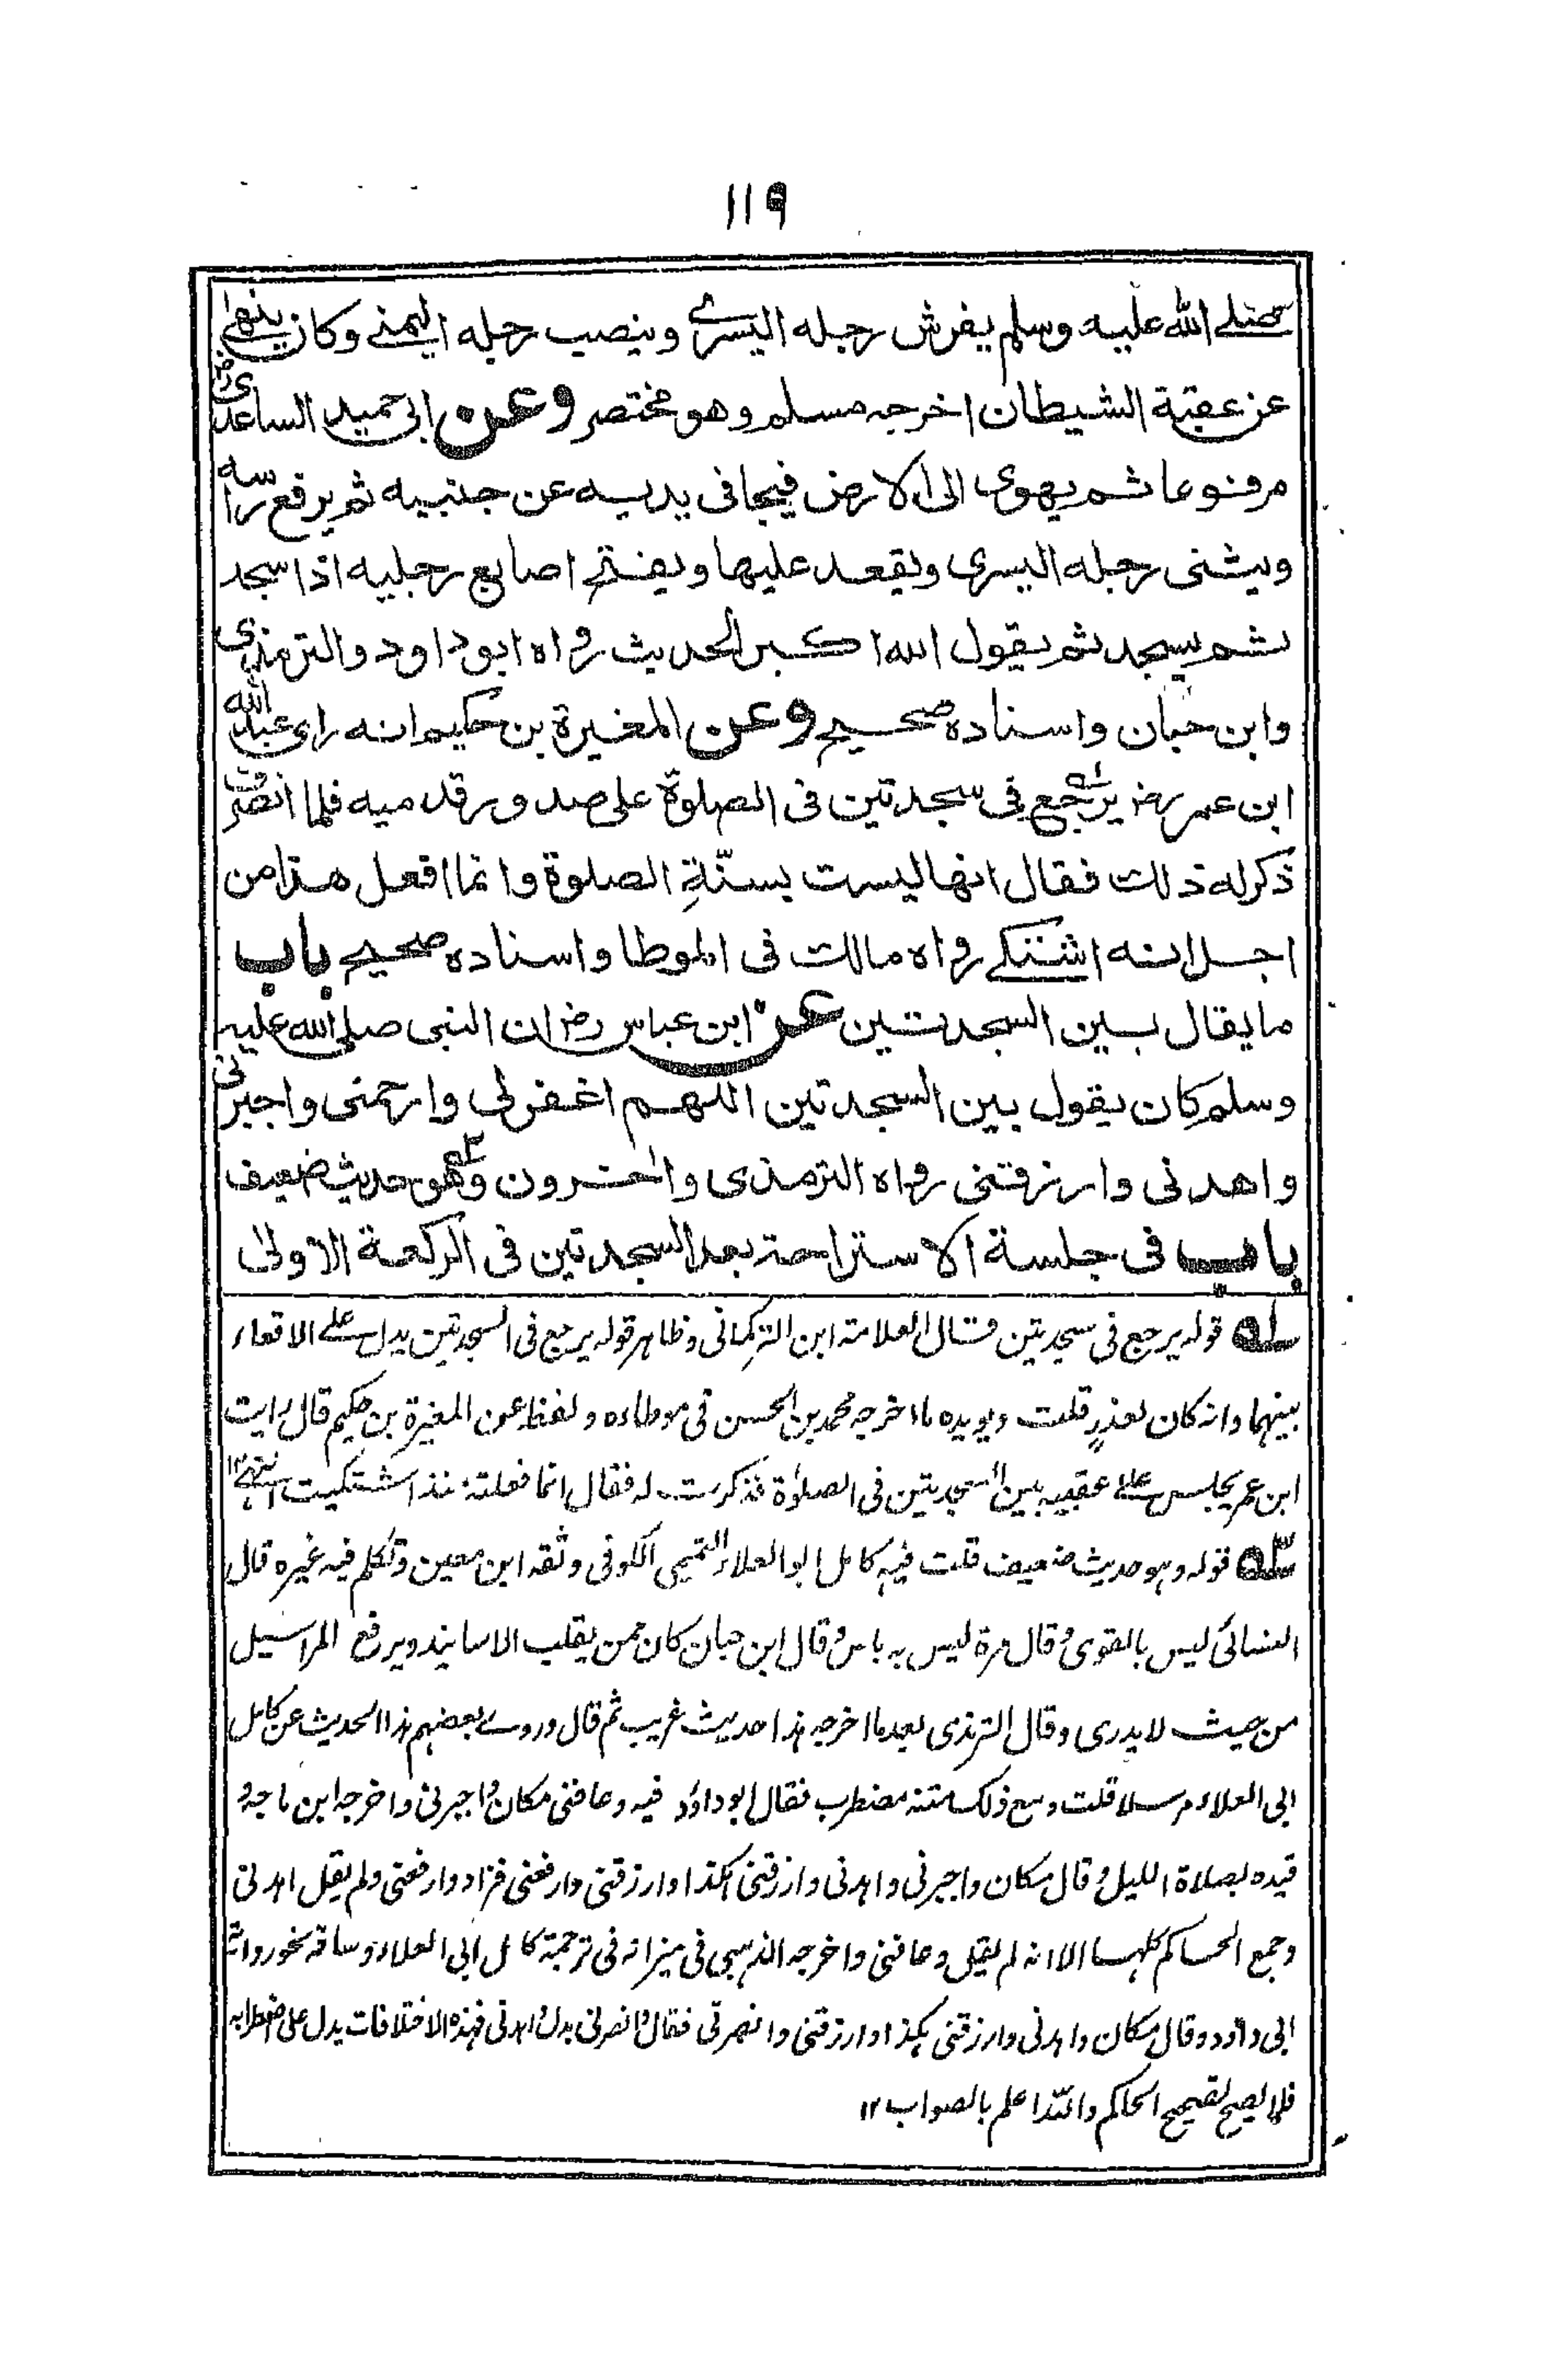 ١١٩
صلے الله عليه وسلم يفرش رجله اليسرے وينصب رجله اليمنے وكان ينهیٰ
عن عقبة الشيطان اخرجه مسلم وهو مختصر وعن ابی حميد الساعدی رض
مرفوعا ثم يهوی الی الارض فيجافی يديه عن جنبيه ثم يرفع راسه
ويثنی رجله اليسری ويقعد عليها ويفتح اصابع رجليه اذا سجد
ثم يسجد ثم يقول الله اكبر الحديث رواه ابو داود والترمذی
وابن حبان واسناده صحيح وعن المغيرة بن حكيم انه رای عبد الله
ابن عمر رض يرجع له فی سجدتين فی الصلوة علی صدور قدميه فلما انصرف
ذكر له ذلك فقال انها ليست بسنّةِ الصلوة وانما افعل هذا من
اجل انه اشتكے رواه مالك فی الموطا واسناده صحيح باب
ما يقال بين السجدتين عن ابن عباس رض ان النبی صلی الله عليه
وسلم كان يقول بين السجدتين اللهم اغفر لی وارحمنی واجبرنی
واهدنی وارزقنی رواه الترمذی واٰخرون وهو حديث ضعيف
باب فی جلسة الاستراحة بعد السجدتين فی الركعة الاولیٰ
له قوله يرجع فی سجدتين قال العلامة ابن التركمانی وظاهر قوله يرجع فی السجدتين يدل علے الاقعاء
بينهما وانه كان لعذرٍ قلت ويويده ما اخرجه محمد بن الحسن فی موطاءه ولفظه عن المغيرة بن حكيم قال رايت
ابن عمر يجلس علے عقبيه بين السجدتين فی الصلوٰة فذكرت له فقال انما فعلته منذ اشتكيت انتهے ١٢
٢ه قوله وهو حديث ضعيف قلت فيه كامل ابو العلاء التميمی الكوفی وثقه ابن معين وتكلم فيه غيره قال
النسائی ليس بالقوی وقال مرة ليس به باس وقال ابن حبان كان ممن يقلب الاسانيد ويرفع المراسيل
من حيث لا يدری وقال الترمذی بعد ما اخرجه هذا حديث غريب ثم قال وروے بعضهم هذا الحديث عن كامل
ابی العلاء مرسلا قلت ومع ذلك متنه مضطرب فقال ابو داؤد فيه وعافنی مكان واجبرنی واخرجه ابن ماجة و
قيده بصلاة الليل وقال مكان واجبرنی واهدنی وارزقنی هكذا وارزقنی وارفعنی فزاد وارفعنی ولم يقل اهدنی
وجمع الحاكم كلها الا انه لم يقل وعافنی واخرجه الذهبی فی ميزانه فی ترجمة كامل ابی العلاء وساقه نحو رواية
ابی داؤد وقال مكان واهدنی وارزقنی هكذا وارزقنی وانصرنی فقال وانصرنی بدل اهدنی فهذه الاختلافات يدل علی اضطرابه
فلا يصح تصحيح الحاكم والله اعلم بالصواب ١٢